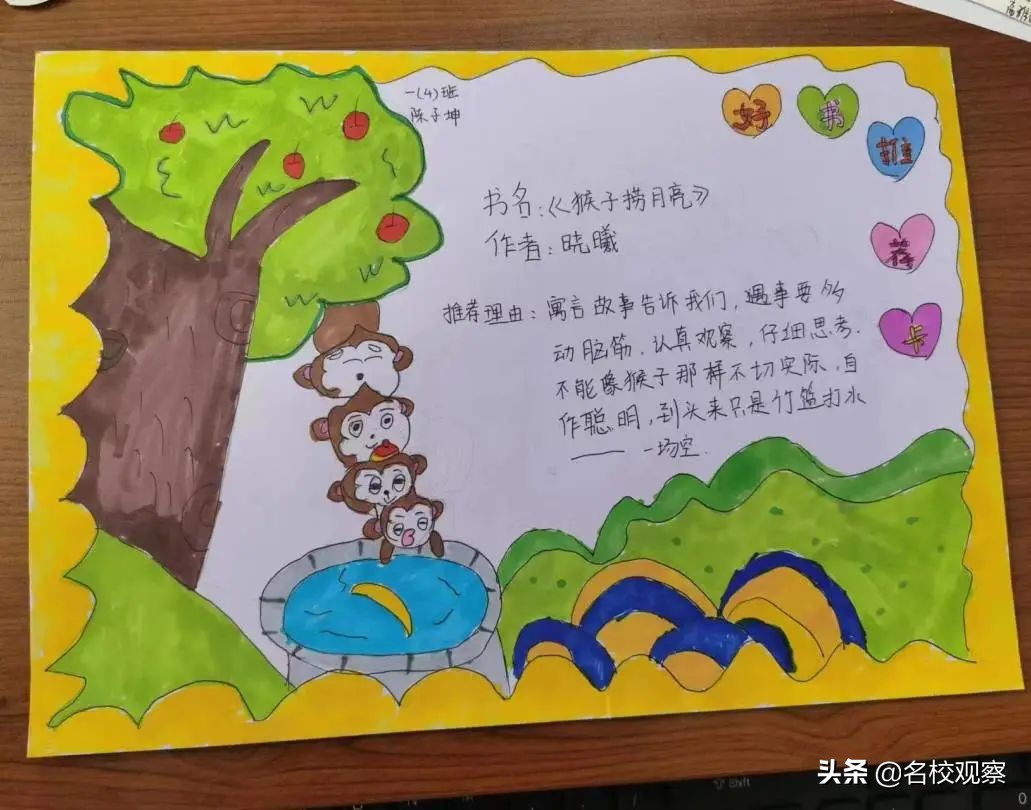 一(4)班
陈子坤
好
书
推
荐
卡
书名:《猴子捞月亮》
作者:晓曦
推荐理由:寓言故事告诉我们,遇事要多
动脑筋.认真观察,仔细思考.
不能像猴子那样不切实际,自
作聪明,到头来只是竹篮打水
—— 一场空.
Shift
头条 @名校观察